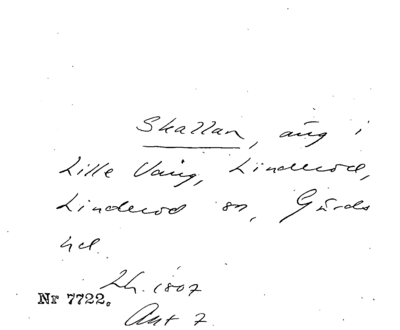 Skallan, äng i
Lille Vång, Linderöd,
Linderöd sn, Gärds
hd.
Lh. 1807
Nr 7722.
Akt 7